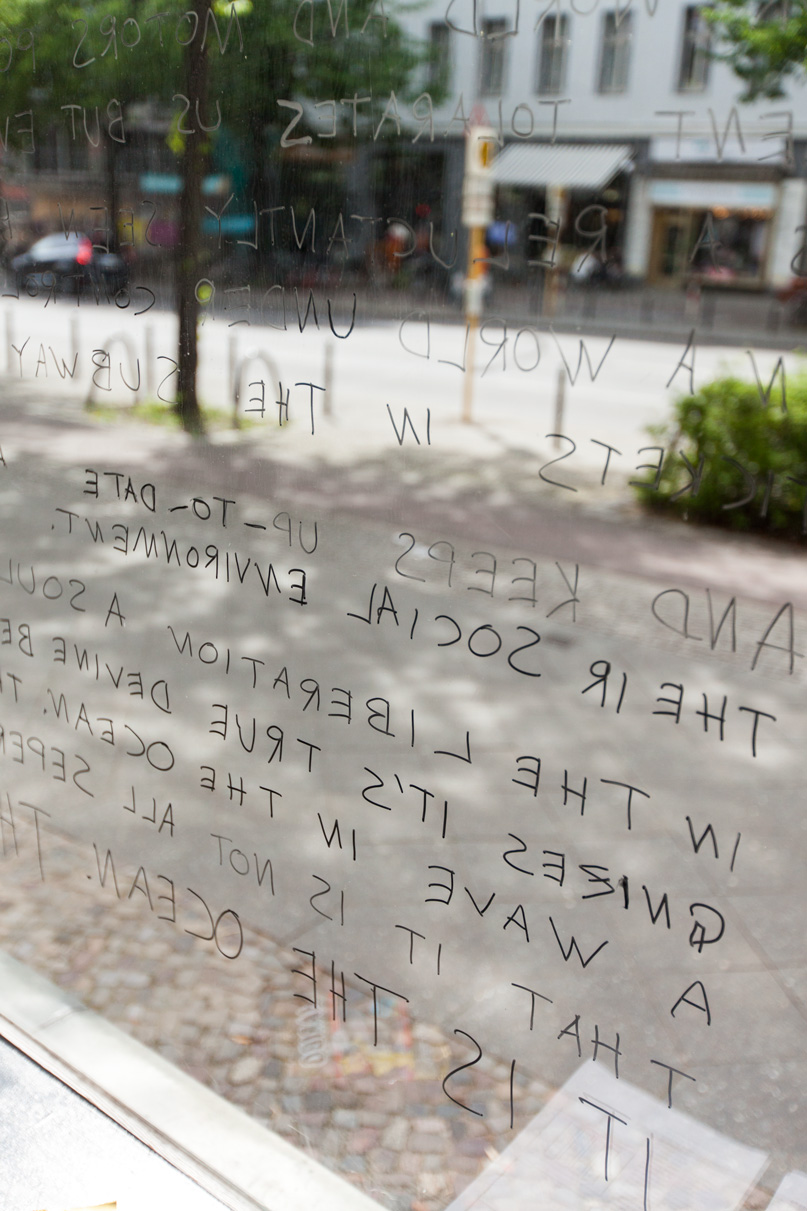 WORLD AND MOTORS
ENT TOLARATES US BUT EN
A RELUCTANTLY
N A WORLD UNDER CONTROL
ICKETS IN THE SUBWAY
AND KEEPS UP-TO-DATE
THEIR SOCIAL ENVIRONMENT.
IN THE LIBERATION A SOUL
GNIZES IT'S TRUE DEVINE BE
A WAVE IN THE OCEAN. T
THAT IT IS NOT ALL SEPER
IT IS THE OCEAN. TH